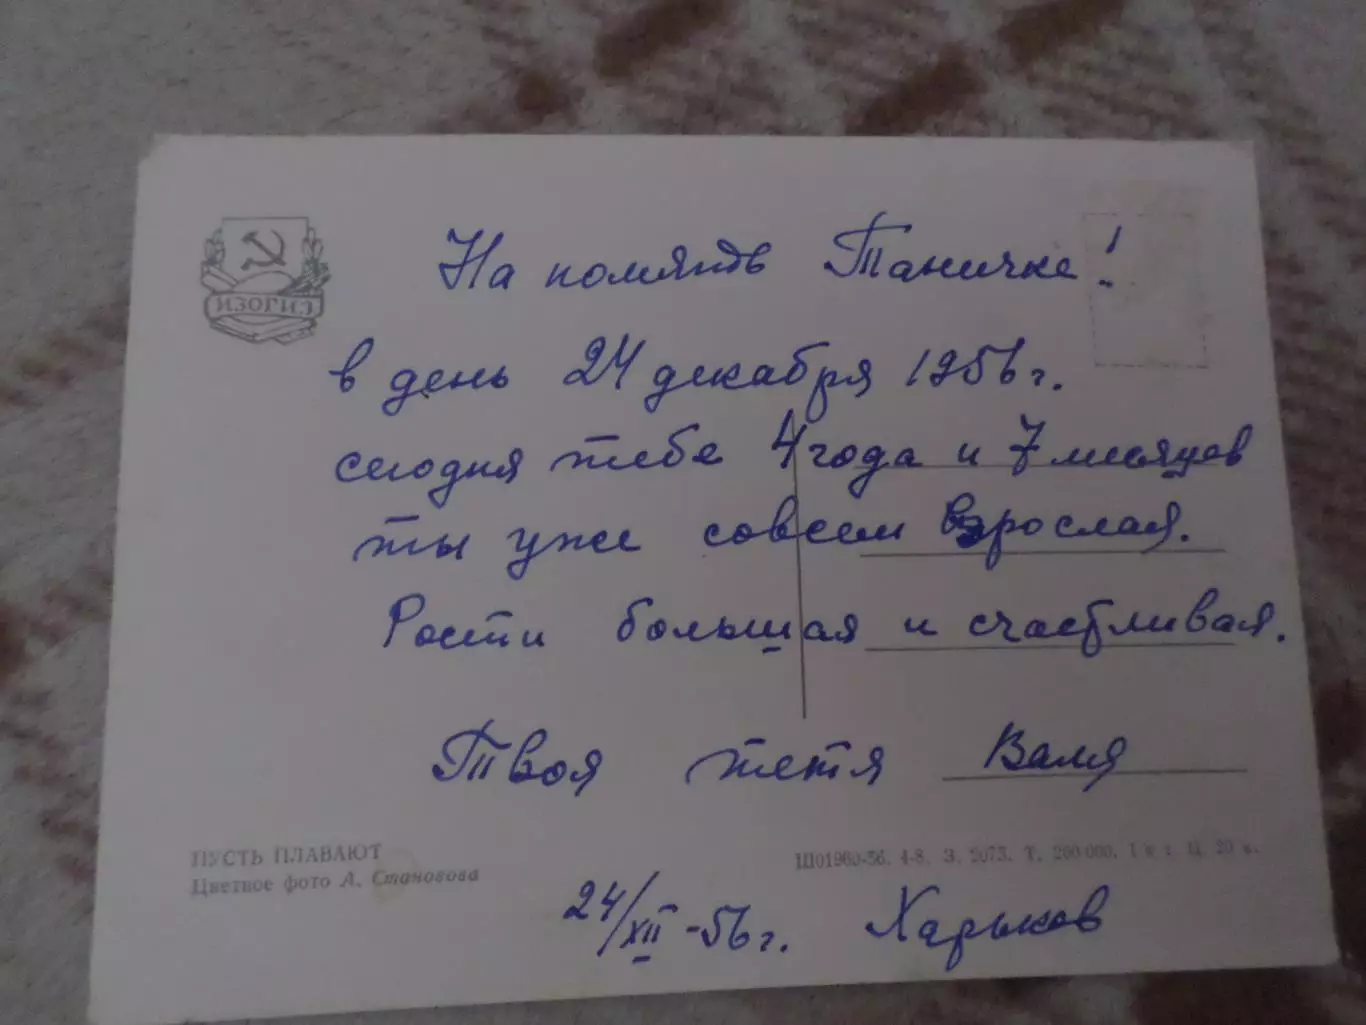 ИЗОГИЗ
На помятдь Таничке!
в день 24 декабря 1956 г.
сегодня тебе 4 года и 7 месяцев
ты уже совсем взрослая.
Рости большая и счастливая.
Твоя тетя Валя
ПУСТЬ ПЛАВАЮТ
Цветное фото А. Становова
Ш01960-56. 4-8. З. 2073. Т. 260 000. I к т. Ц. 20 к.
24/XII-56 г. Харьков